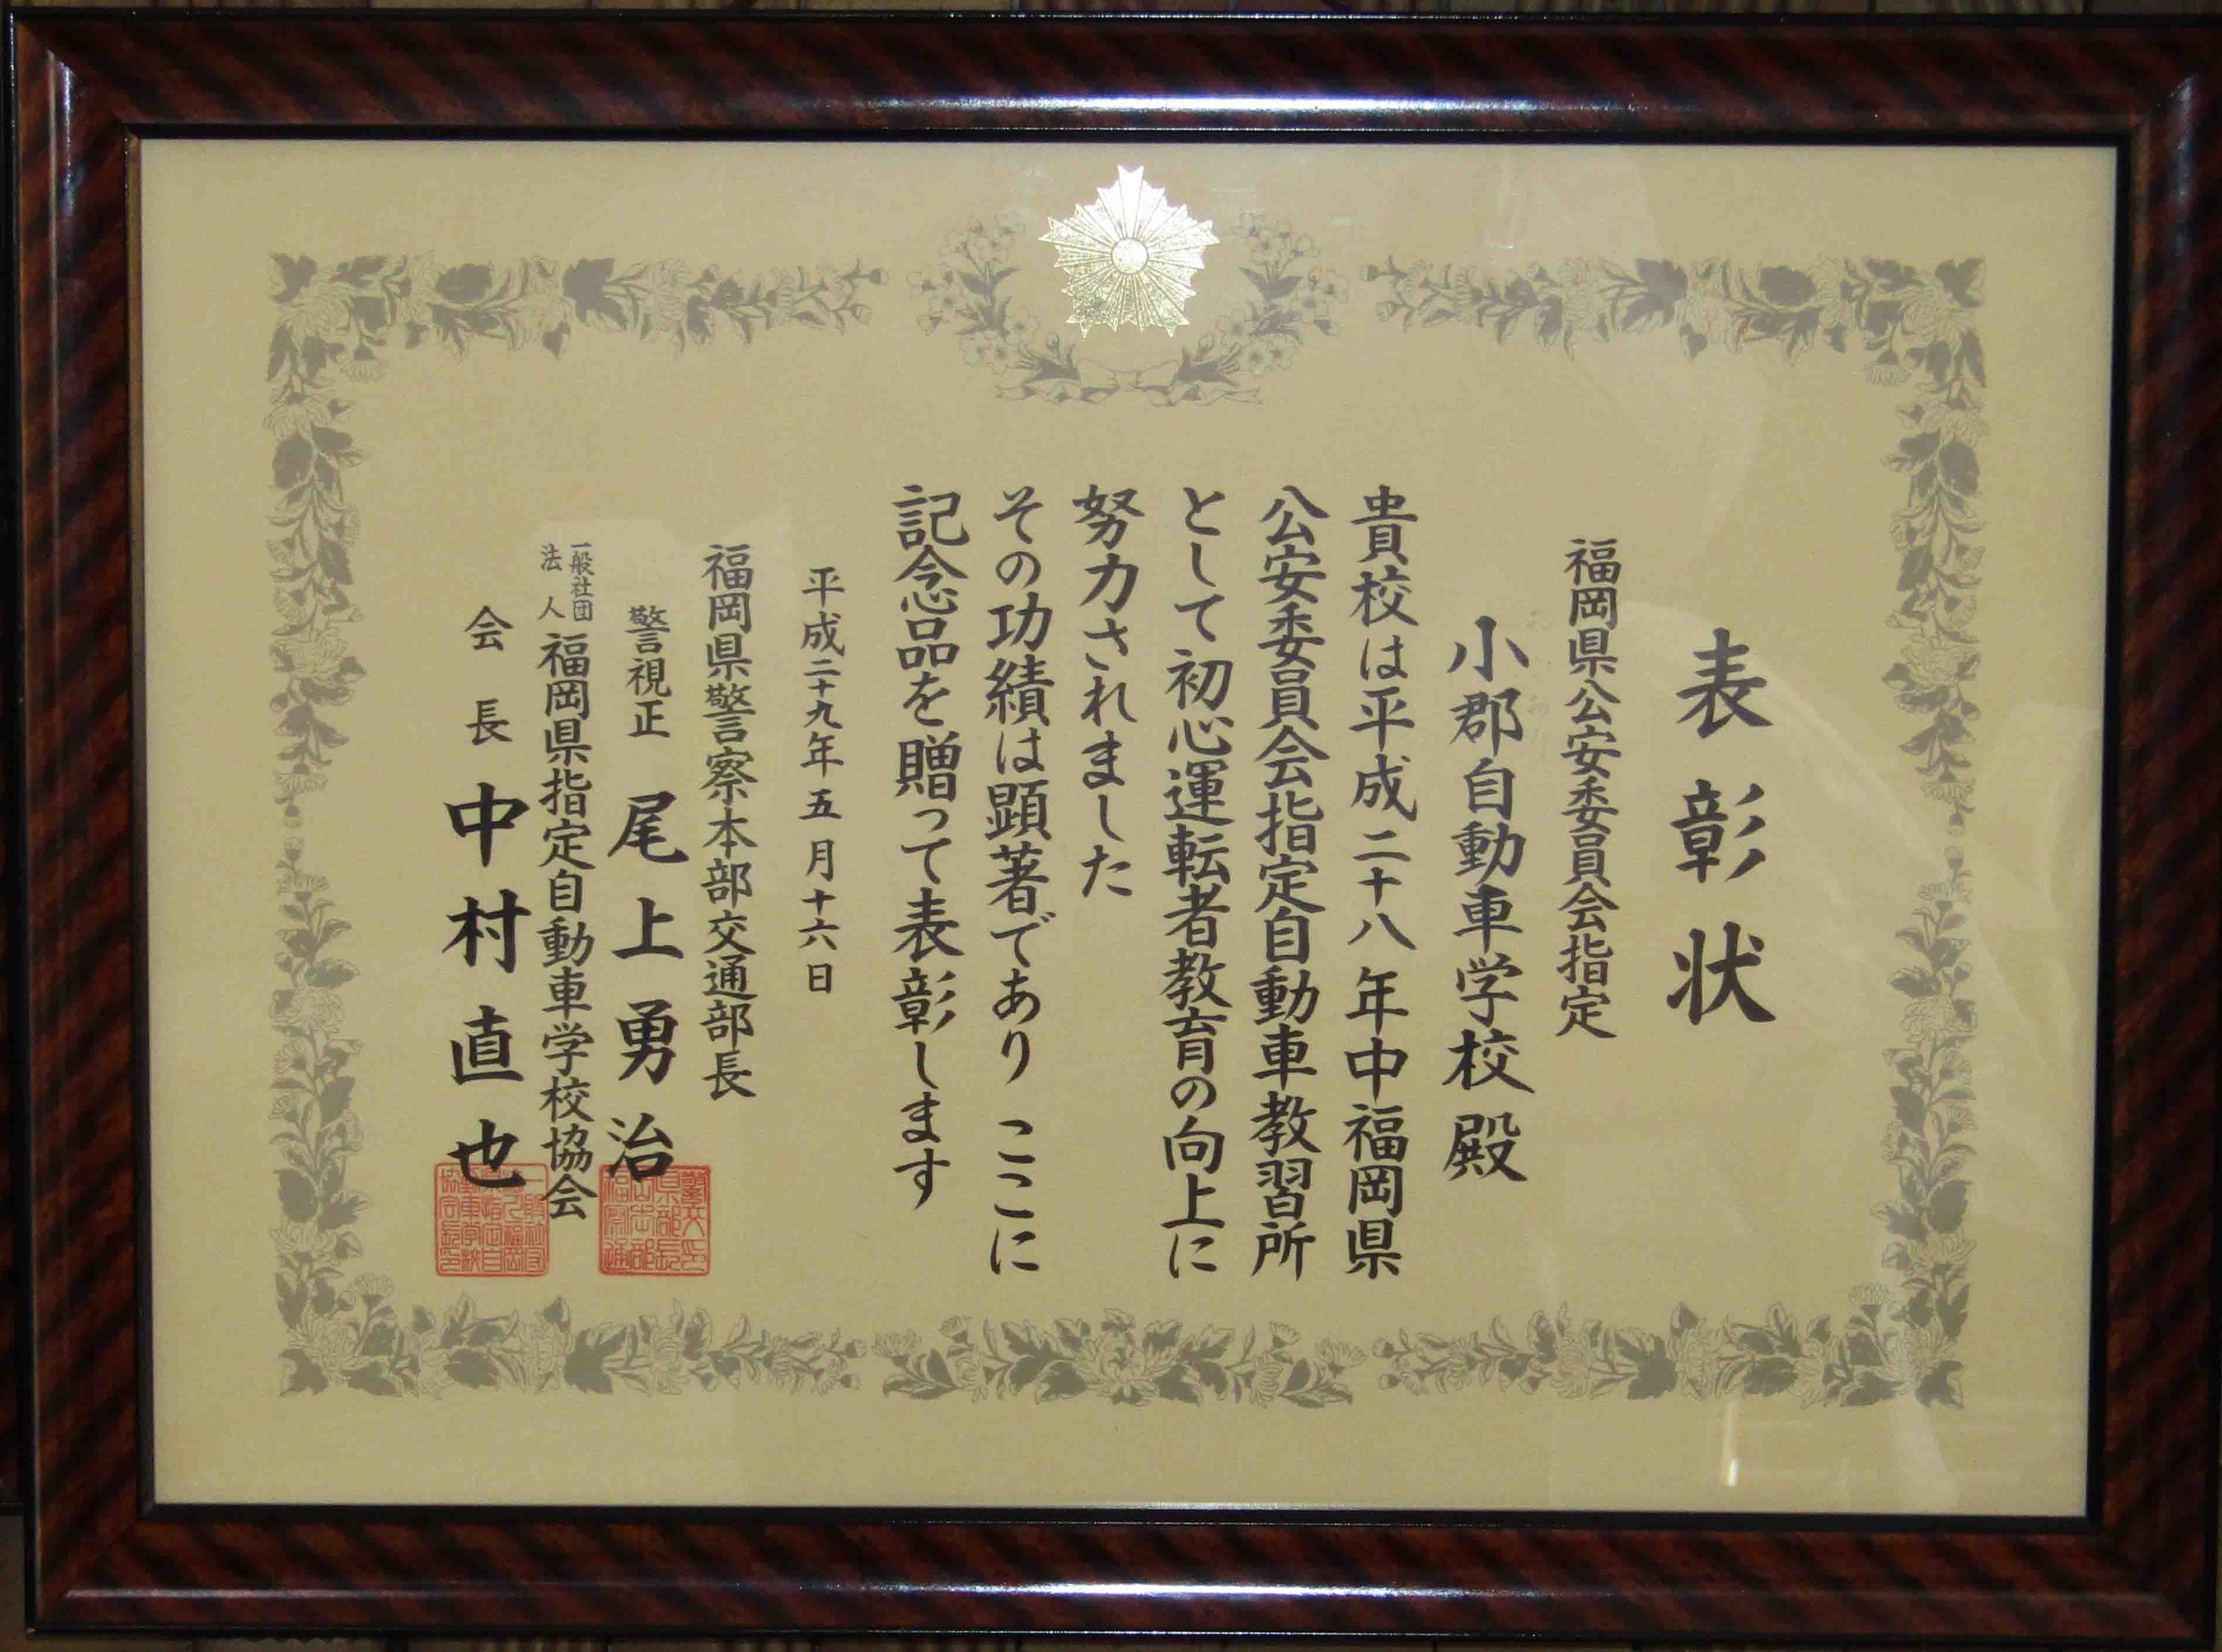 表彰状
福岡県公安委員会指定
小郡自動車学校殿
貴校は平成二十八年中福岡県
公安委員会指定自動車教習所
として初心運転者教育の向上に
努力されました
その功績は顕著であり ここに
記念品を贈って表彰します
平成二十九年五月十六日
福岡県警察本部交通部長
警視正 尾上勇治
一般社団法人 福岡県指定自動車学校協会
会長 中村直也